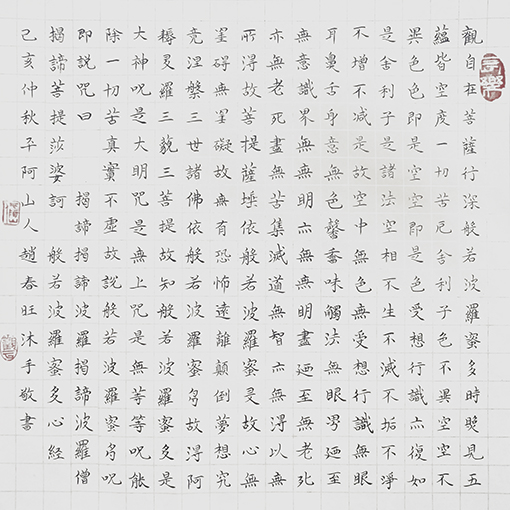 觀自在菩薩行深般若波羅蜜多時照見五
蘊皆空度一切苦厄舍利子色不異空空不
異色色即是空空即是色受想行識亦復如
是舍利子是諸法空相不生不滅不垢不淨
不增不減是故空中無色無受想行識無眼
耳鼻舌身意無色聲香味觸法無眼界廼至
無意識界無無明亦無無明盡廼至無老死
亦無老死盡無苦集滅道無智亦無得以無
所得故菩提薩埵依般若波羅蜜多故心無
罣礙無罣礙故無有恐怖遠離顛倒夢想究
竟涅槃三世諸佛依般若波羅蜜多故得阿
耨多羅三藐三菩提故知般若波羅蜜多是
大神呪是大明呪是無上呪是無等等呪能
除一切苦真實不虛故說般若波羅蜜多呪
即說呪曰 揭諦揭諦波羅揭諦波羅僧
揭諦菩提莎婆訶 般若波羅蜜多心經
己亥仲秋平阿山人趙春旺沐手敬書